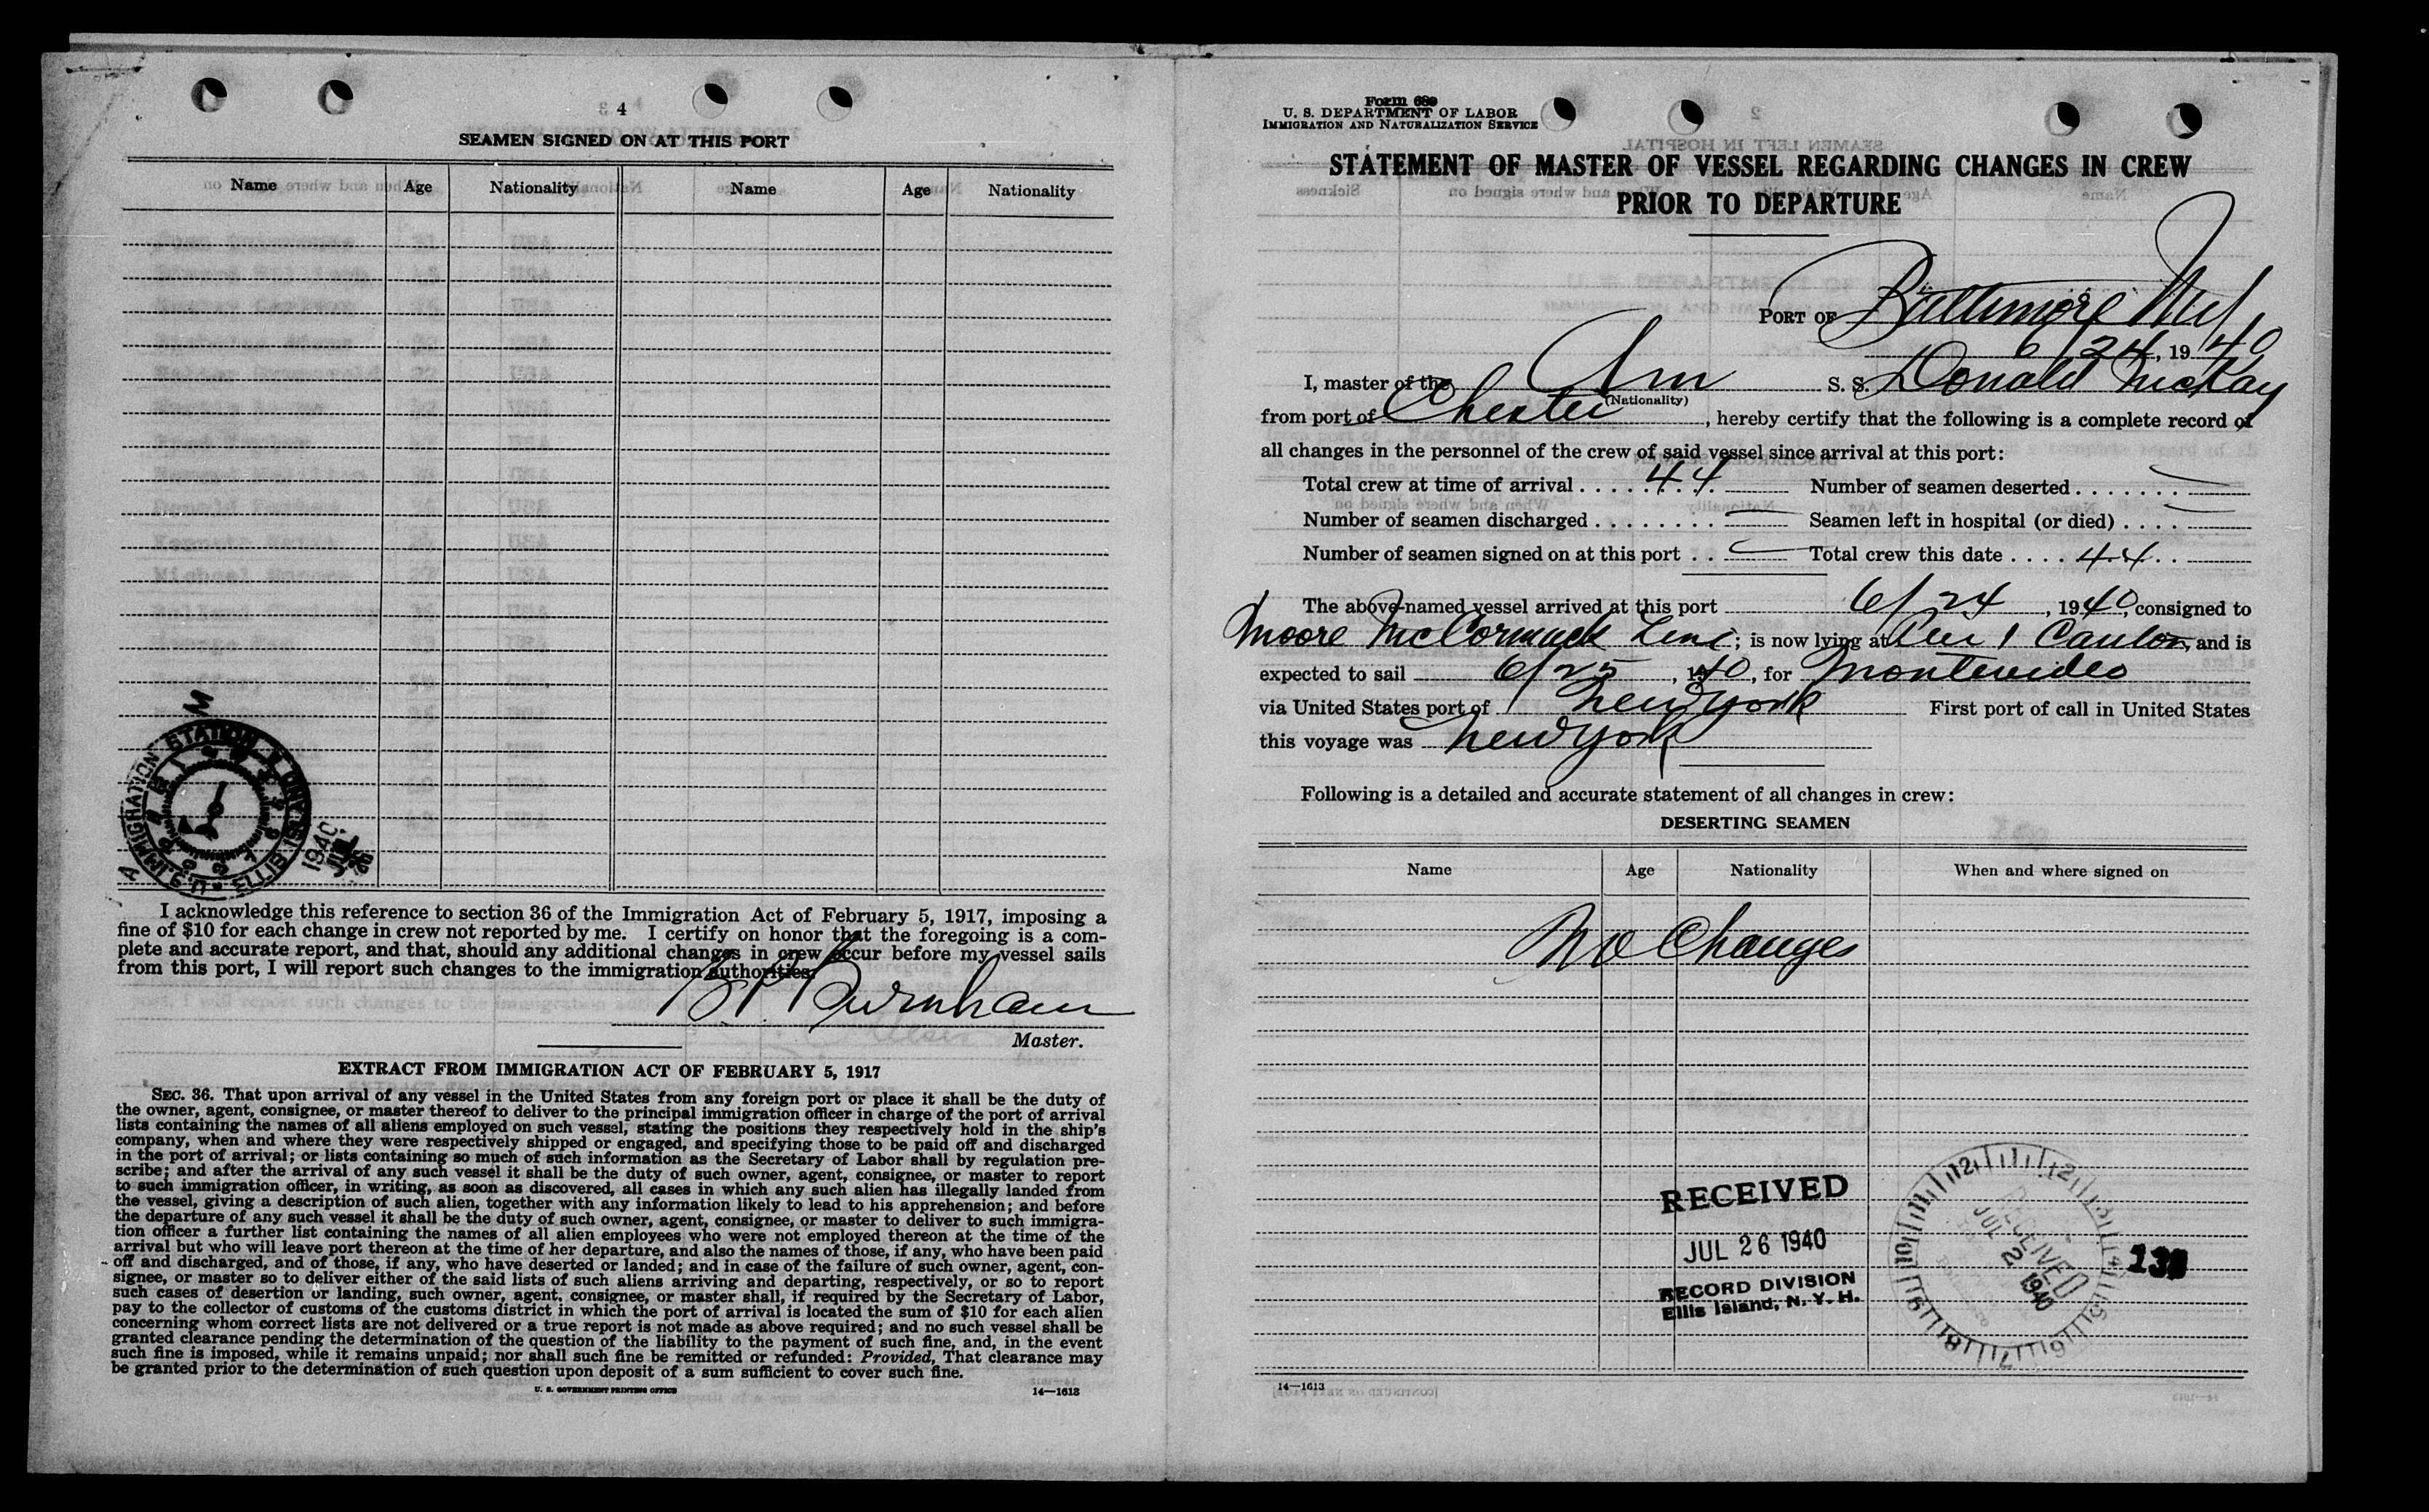 4
SEAMEN SIGNED ON AT THIS PORT
Name Age Nationality Name Age Nationality
U.S. IMMIGRATION STATION ELLIS ISLAND
1940
I acknowledge this reference to section 36 of the Immigration Act of February 5, 1917, imposing a
fine of $10 for each change in crew not reported by me. I certify on honor that the foregoing is a com-
plete and accurate report, and that, should any additional changes in crew occur before my vessel sails
from this port, I will report such changes to the immigration authorities.
Burnham
Master.
EXTRACT FROM IMMIGRATION ACT OF FEBRUARY 5, 1917
SEC. 36. That upon arrival of any vessel in the United States from any foreign port or place it shall be the duty of
the owner, agent, consignee, or master thereof to deliver to the principal immigration officer in charge of the port of arrival
lists containing the names of all aliens employed on such vessel, stating the positions they respectively hold in the ship's
company, when and where they were respectively shipped or engaged, and specifying those to be paid off and discharged
in the port of arrival; or lists containing so much of such information as the Secretary of Labor shall by regulation pre-
scribe; and after the arrival of any such vessel it shall be the duty of such owner, agent, consignee, or master to report
to such immigration officer, in writing, as soon as discovered, all cases in which any such alien has illegally landed from
the vessel, giving a description of such alien, together with any information likely to lead to his apprehension; and before
the departure of any such vessel it shall be the duty of such owner, agent, consignee, or master to deliver to such immigra-
tion officer a further list containing the names of all alien employees who were not employed thereon at the time of the
arrival but who will leave port thereon at the time of her departure, and also the names of those, if any, who have been paid
off and discharged, and of those, if any, who have deserted or landed; and in case of the failure of such owner, agent, con-
signee, or master so to deliver either of the said lists of such aliens arriving and departing, respectively, or so to report
such cases of desertion or landing, such owner, agent, consignee, or master shall, if required by the Secretary of Labor,
pay to the collector of customs of the customs district in which the port of arrival is located the sum of $10 for each alien
concerning whom correct lists are not delivered or a true report is not made as above required; and no such vessel shall be
granted clearance pending the determination of the question of the liability to the payment of such fine, and, in the event
such fine is imposed, while it remains unpaid; nor shall such fine be remitted or refunded: Provided, That clearance may
be granted prior to the determination of such question upon deposit of a sum sufficient to cover such fine.
U. S. GOVERNMENT PRINTING OFFICE 14—1613
Form 689
U. S. DEPARTMENT OF LABOR
IMMIGRATION AND NATURALIZATION SERVICE
STATEMENT OF MASTER OF VESSEL REGARDING CHANGES IN CREW
PRIOR TO DEPARTURE
PORT OF Baltimore Md
6/24, 1940
I, master of the Am S. S. Donald McKay
(Nationality)
from port of Chester, hereby certify that the following is a complete record of
all changes in the personnel of the crew of said vessel since arrival at this port:
Total crew at time of arrival . . . . . . 44 Number of seamen deserted . . . . . . . —
Number of seamen discharged . . . . . . . . — Seamen left in hospital (or died) . . . . —
Number of seamen signed on at this port . . — Total crew this date . . . . 44
The above-named vessel arrived at this port 6/24, 1940, consigned to
Moore McCormack Line; is now lying at Pier 1 Canton, and is
expected to sail 6/25, 1940, for Montevideo
via United States port of New York First port of call in United States
this voyage was New York
Following is a detailed and accurate statement of all changes in crew:
DESERTING SEAMEN
Name Age Nationality When and where signed on
No Changes
RECEIVED
JUL 26 1940
RECORD DIVISION
Ellis Island, N. Y. H.
RECEIVED
JUL 2 1940
14—1613